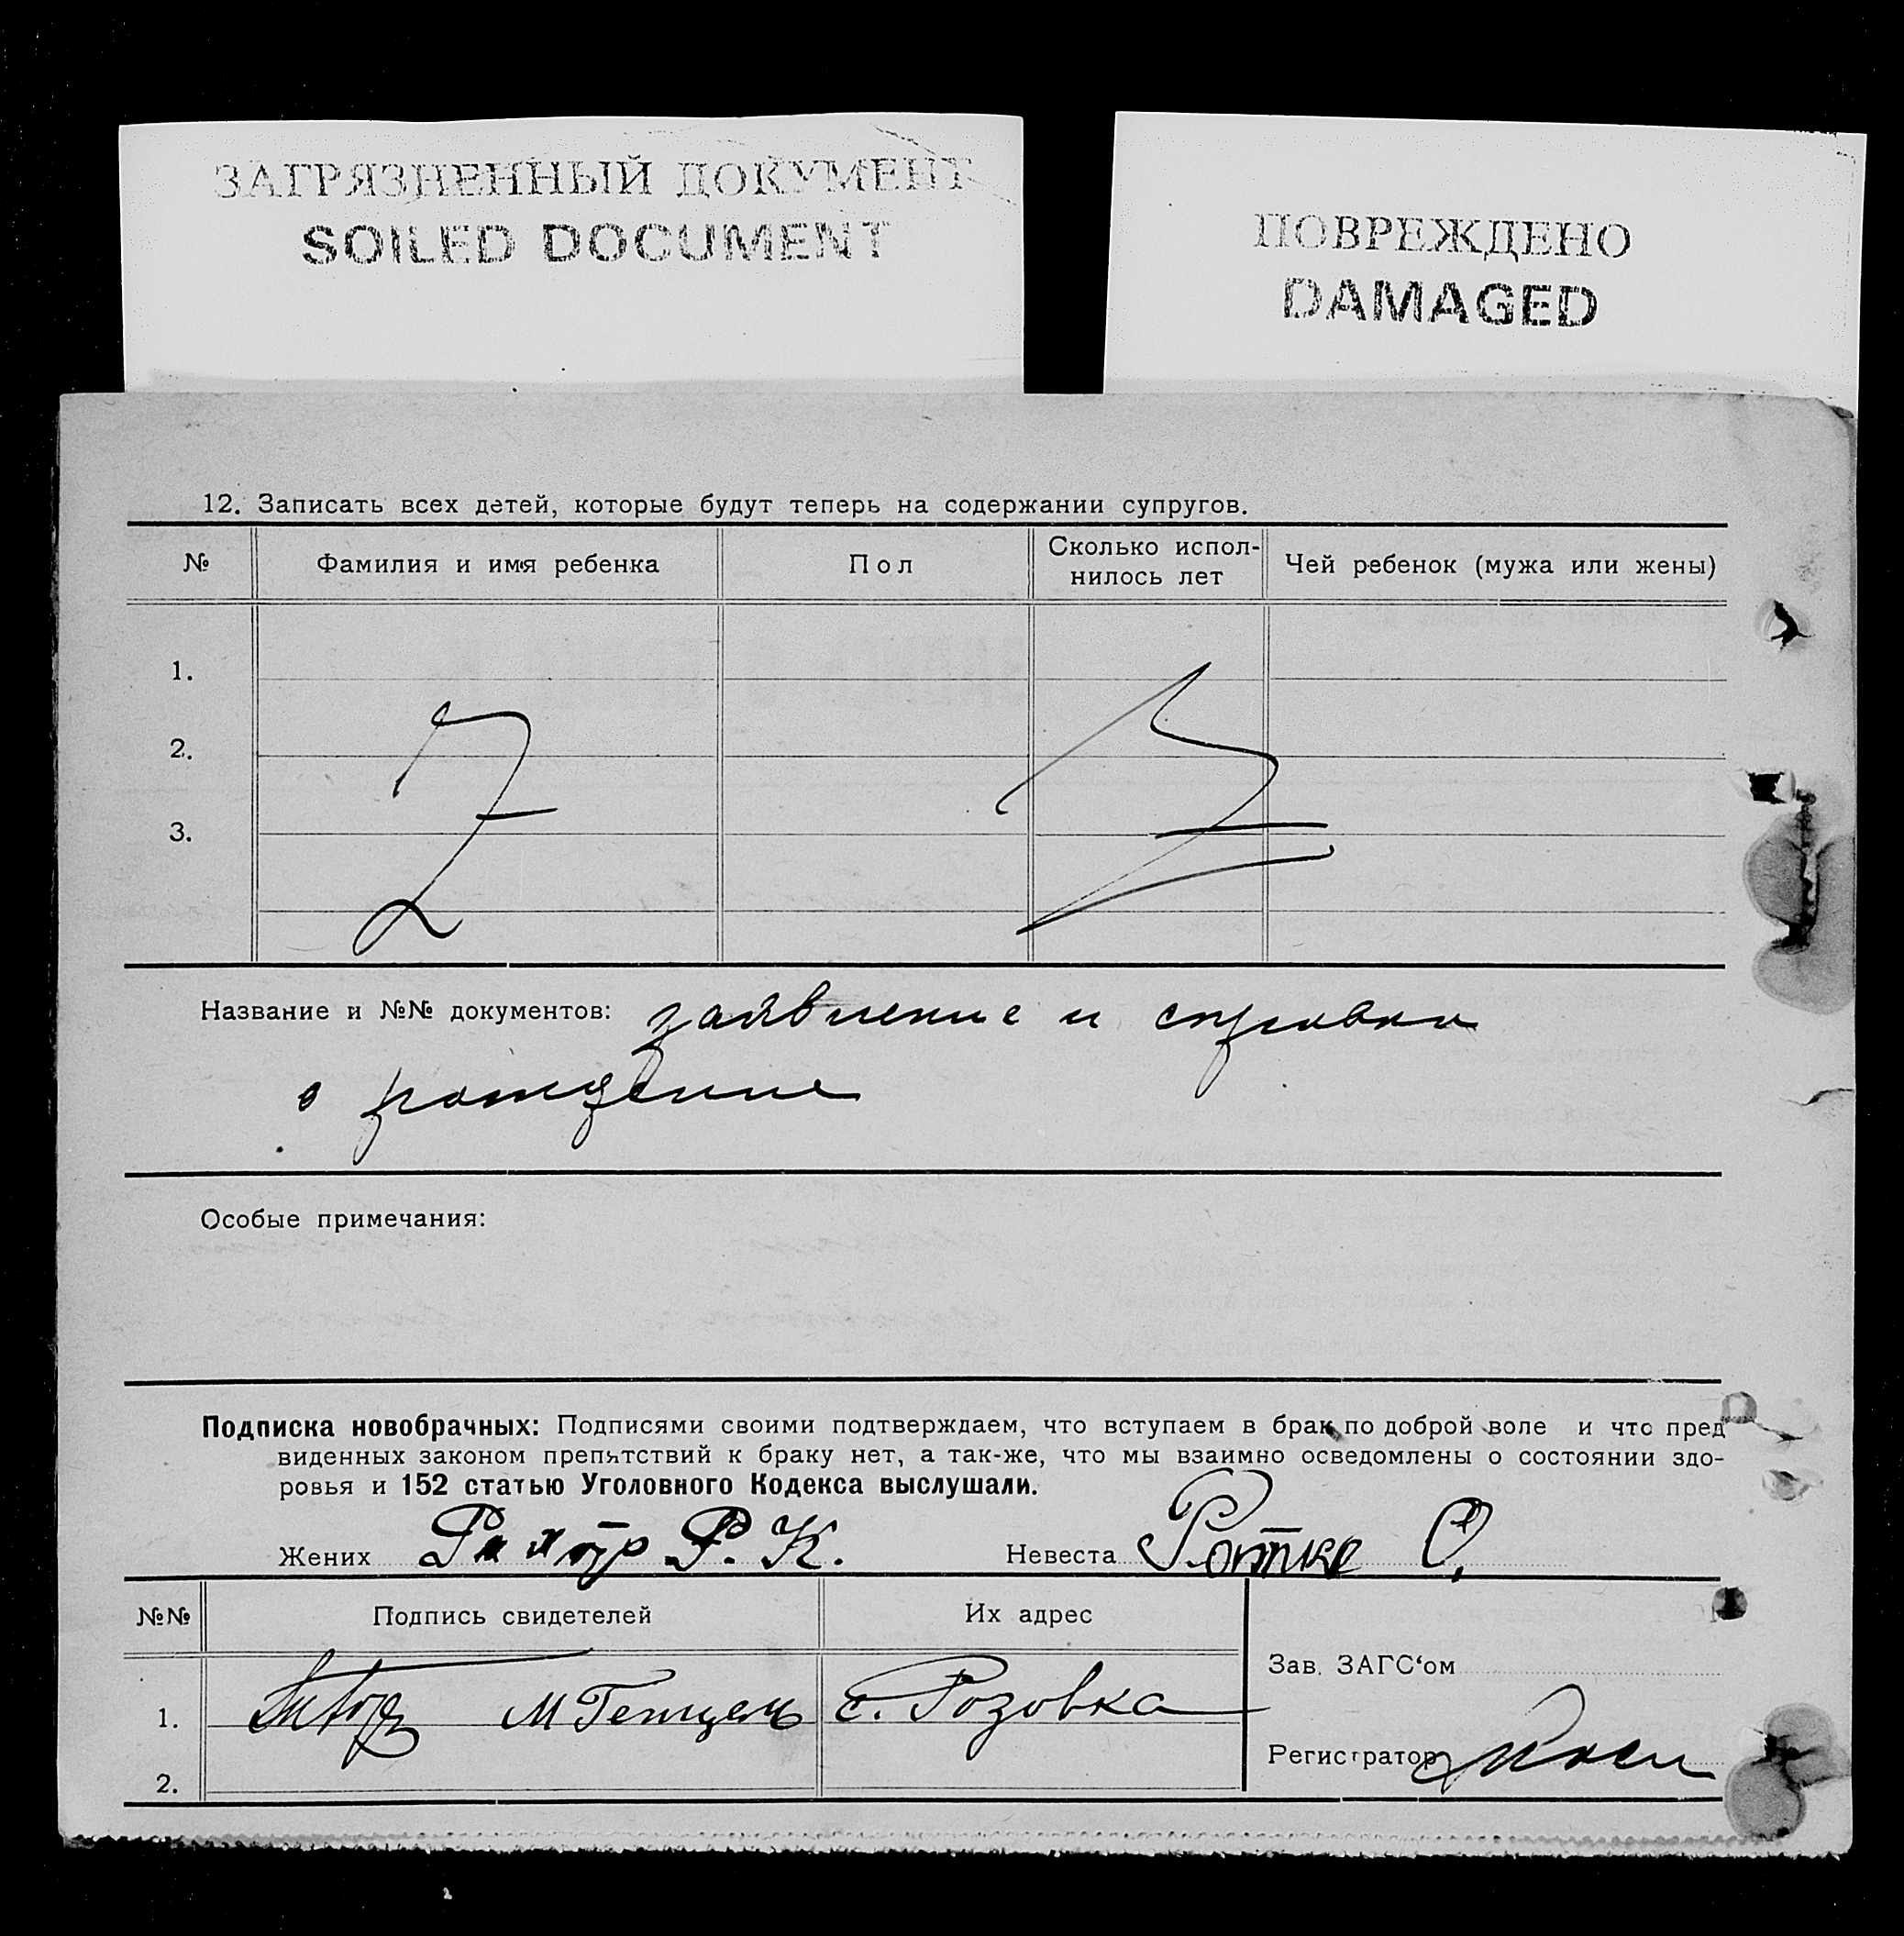 ЗАГРЯЗНЕННЫЙ ДОКУМЕНТ
SOILED DOCUMENT
ПОВРЕЖДЕНО
DAMAGED
12. Записать всех детей, которые будут теперь на содержании супругов.
№ Фамилия и имя ребенка Пол Сколько испол- Чей ребенок (мужа или жены)
нилось лет
1.
2.
3.
Название и №№ документов: заявление и справка
о рождение
Особые примечания:
Подписка новобрачных: Подписями своими подтверждаем, что вступаем в брак по доброй воле и что пред
виденных законом препятствий к браку нет, а так-же, что мы взаимно осведомлены о состоянии здо-
ровья и 152 статью Уголовного Кодекса выслушали.
Жених Р. К. Невеста О.
№№ Подпись свидетелей Их адрес
Зав. ЗАГС‘ом
1. М с. Розовка
Регистратор
2.